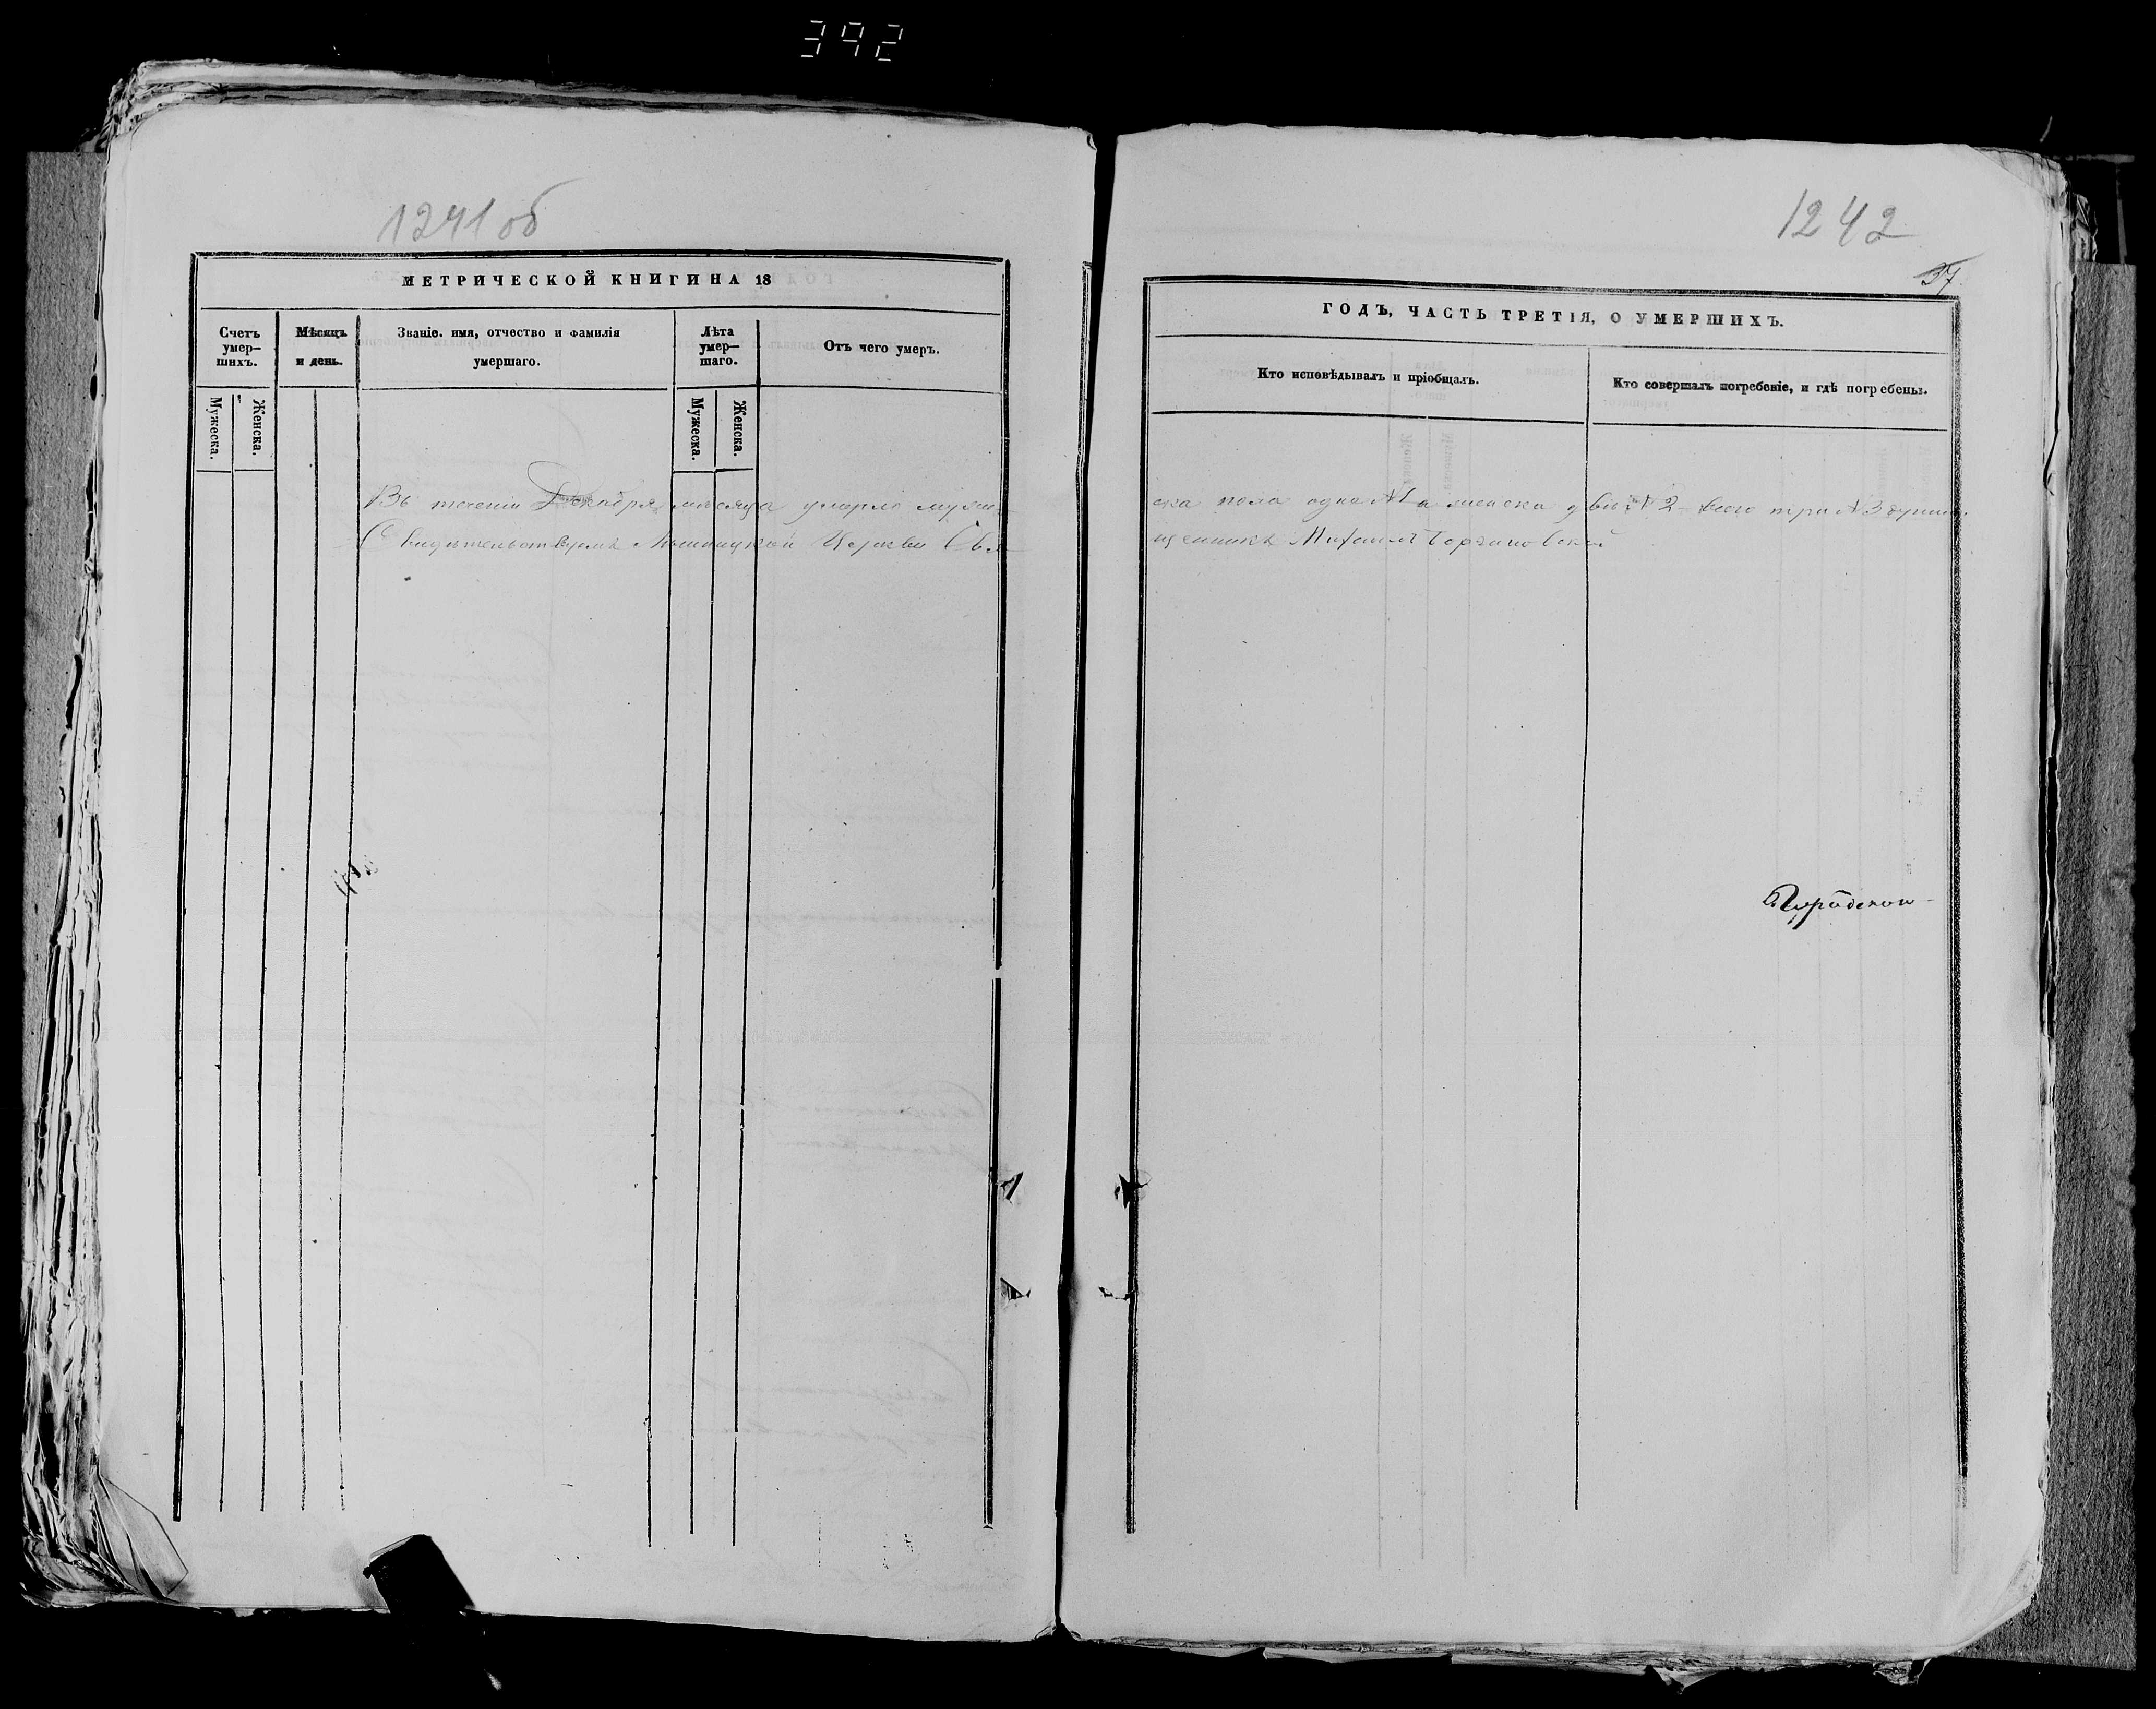 392
1241об
МЕТРИЧЕСКОЙ КНИГИ НА 18
Счетъ умер-шихъ.
Мѣсяцъ и день.
Званіе. имя, отчество и фамилія умершаго.
Лѣта умер-шаго.
Отъ чего умеръ.
Мужеска.
Женска.
Мужеска.
Женска.
Въ теченіи Декабря мѣсяца умерло муже-
Свидѣтельствуемъ Церкви Свя-
1242
37.
ГОДЪ, ЧАСТЬ ТРЕТІЯ, О УМЕРШИХЪ.
Кто исповѣдывалъ и пріобщалъ.
Кто совершалъ погребеніе, и гдѣ погребены.
ска пола одна №1 а женска двѣ №2 всего три №3 души.
щенникъ Михаилъ